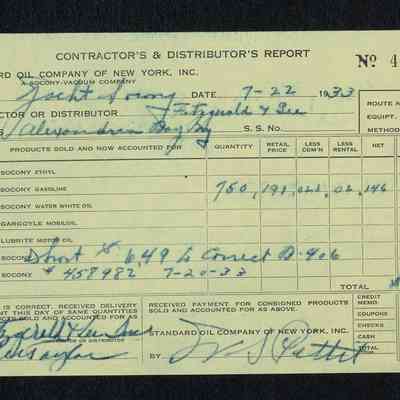 CONTRACTOR'S & DISTRIBUTOR'S REPORT
Nº 4
RD OIL COMPANY OF NEW YORK, INC.
A SOCONY-VACUUM COMPANY
Yacht Socony DATE 7-22 1933
ROUTE N
CTOR OR DISTRIBUTOR Fitzgerald & Lee
EQUIPT.
Alexandria Bay Ny S. S. No.
METHOD
PRODUCTS SOLD AND NOW ACCOUNTED FOR QUANTITY RETAIL PRICE LESS COM'N LESS TAX NET
SOCONY ETHYL
SOCONY GASOLINE 750 .02 .146
SOCONY WATER WHITE OIL
GARGOYLE MOBILOIL
LUBRITE MOTOR OIL
Short $ 6.49 to Correct D-406
SOCONY # 458982 7-20-33
TOTAL
IS CORRECT. RECEIVED DELIVERY
THIS DAY OF SAME QUANTITIES
SOLD AND ACCOUNTED FOR AS ABOVE.
RECEIVED PAYMENT FOR CONSIGNED PRODUCTS
SOLD AND ACCOUNTED FOR AS ABOVE.
STANDARD OIL COMPANY OF NEW YORK, INC.
BY
CREDIT MEMO
COUPONS
CHECKS
CASH
TOTAL